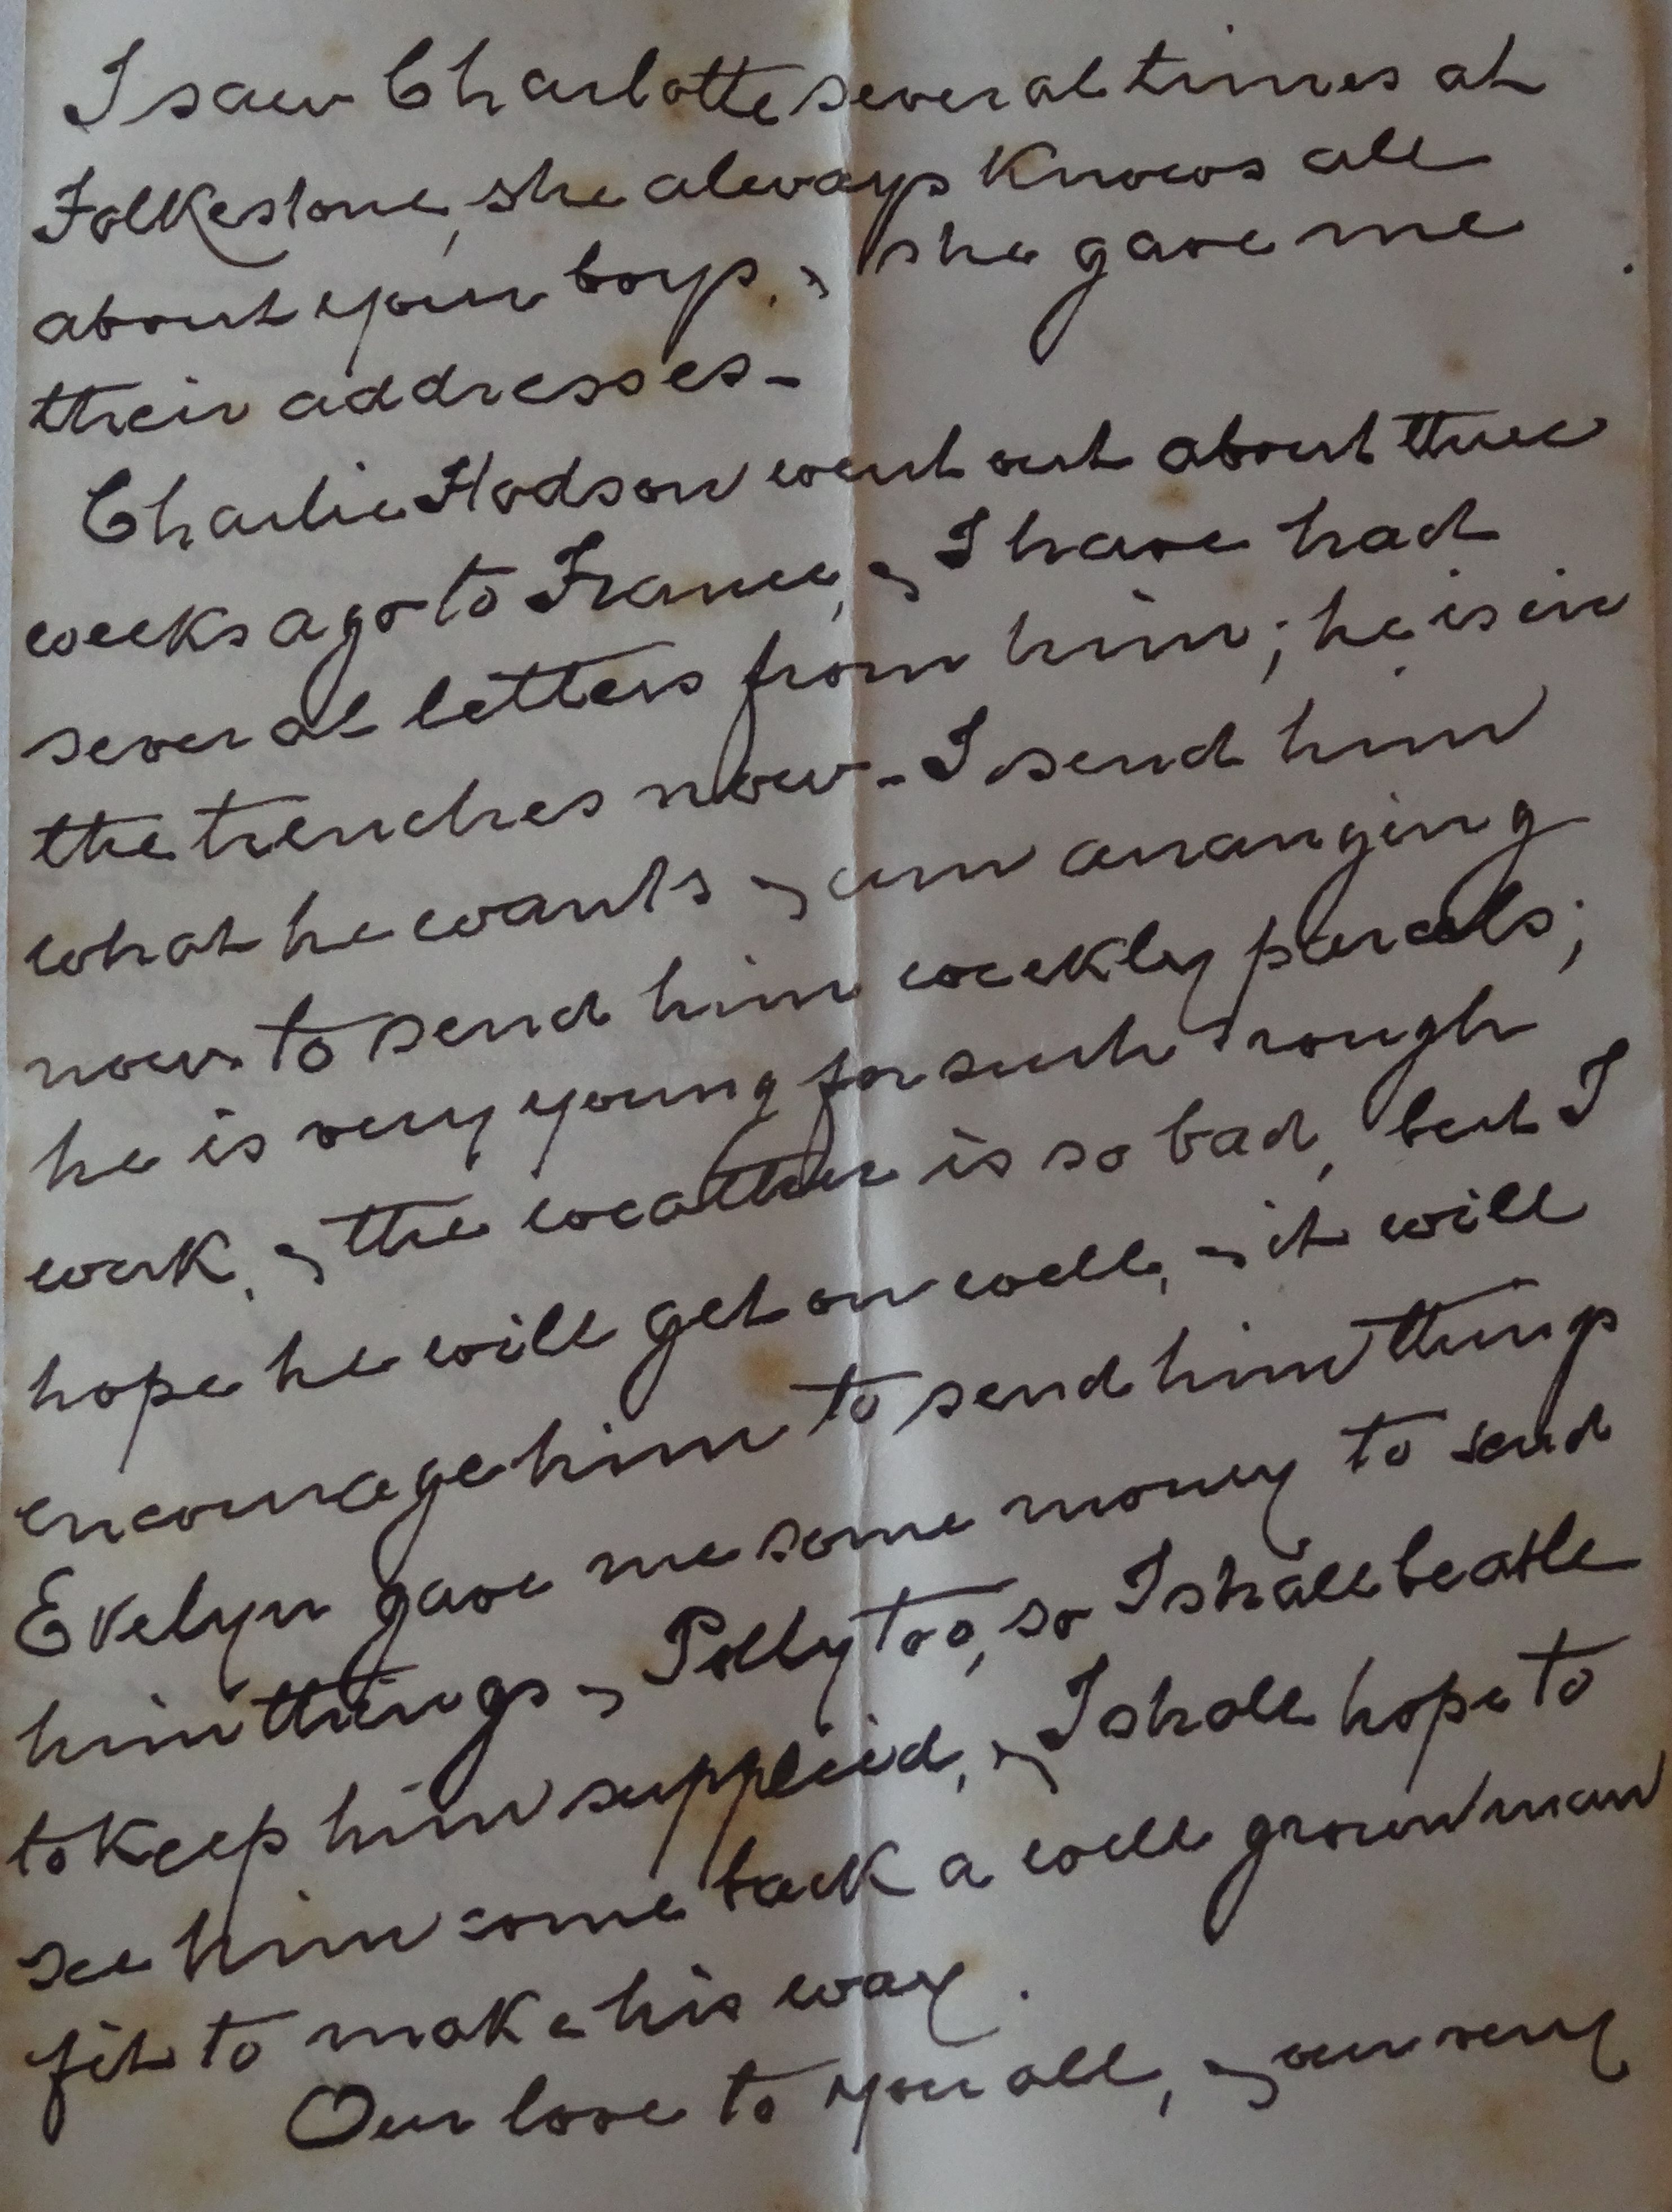 I saw Charlotte several times at
Folkestone, she always knows all
about your boys, & she gave me
their addresses -
Charlie Hodson went out about three
weeks ago to France, & I have had
several letters from him; he is in
the trenches now - I send him
what he wants & am arranging
now to send him weekly parcels;
he is very young for such rough
work, & the weather is so bad, but I
hope he will get on well, & it will
encourage him to send him things
Evelyn gave me some money to send
him things & Polly too, so I shall be able
to keep him supplied, & I shall hope to
see him come back a well grown man
fit to make his way.
Our love to you all, & our very